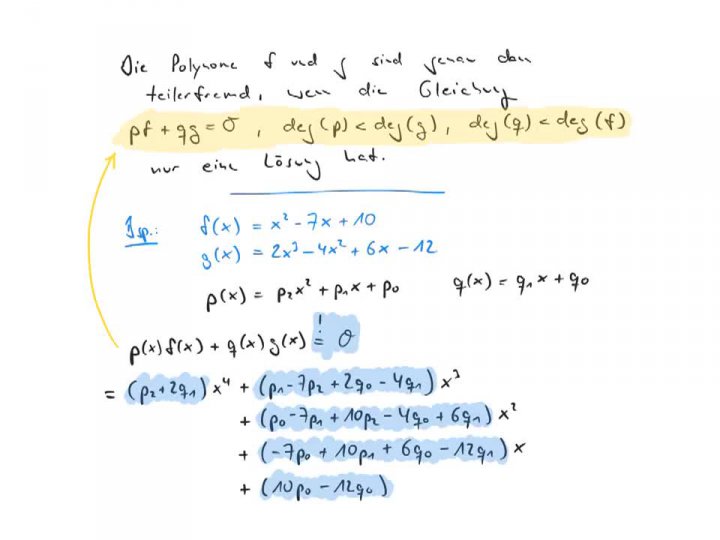 Die Polynome f und g sind genau dann
teilerfremd, wenn die Gleichung
pf + qg = 0 , deg(p) < deg(g), deg(q) < deg(f)
nur eine Lösung hat.
Bsp.: f(x) = x² - 7x + 10
g(x) = 2x³ - 4x² + 6x - 12
p(x) = p₂x² + p₁x + p₀ q(x) = q₁x + q₀
p(x)f(x) + q(x)g(x) != 0
= (p₂ + 2q₁) x⁴ + (p₁ - 7p₂ + 2q₀ - 4q₁) x³
+ (p₀ - 7p₁ + 10p₂ - 4q₀ + 6q₁) x²
+ (-7p₀ + 10p₁ + 6q₀ - 12q₁) x
+ (10p₀ - 12q₀)